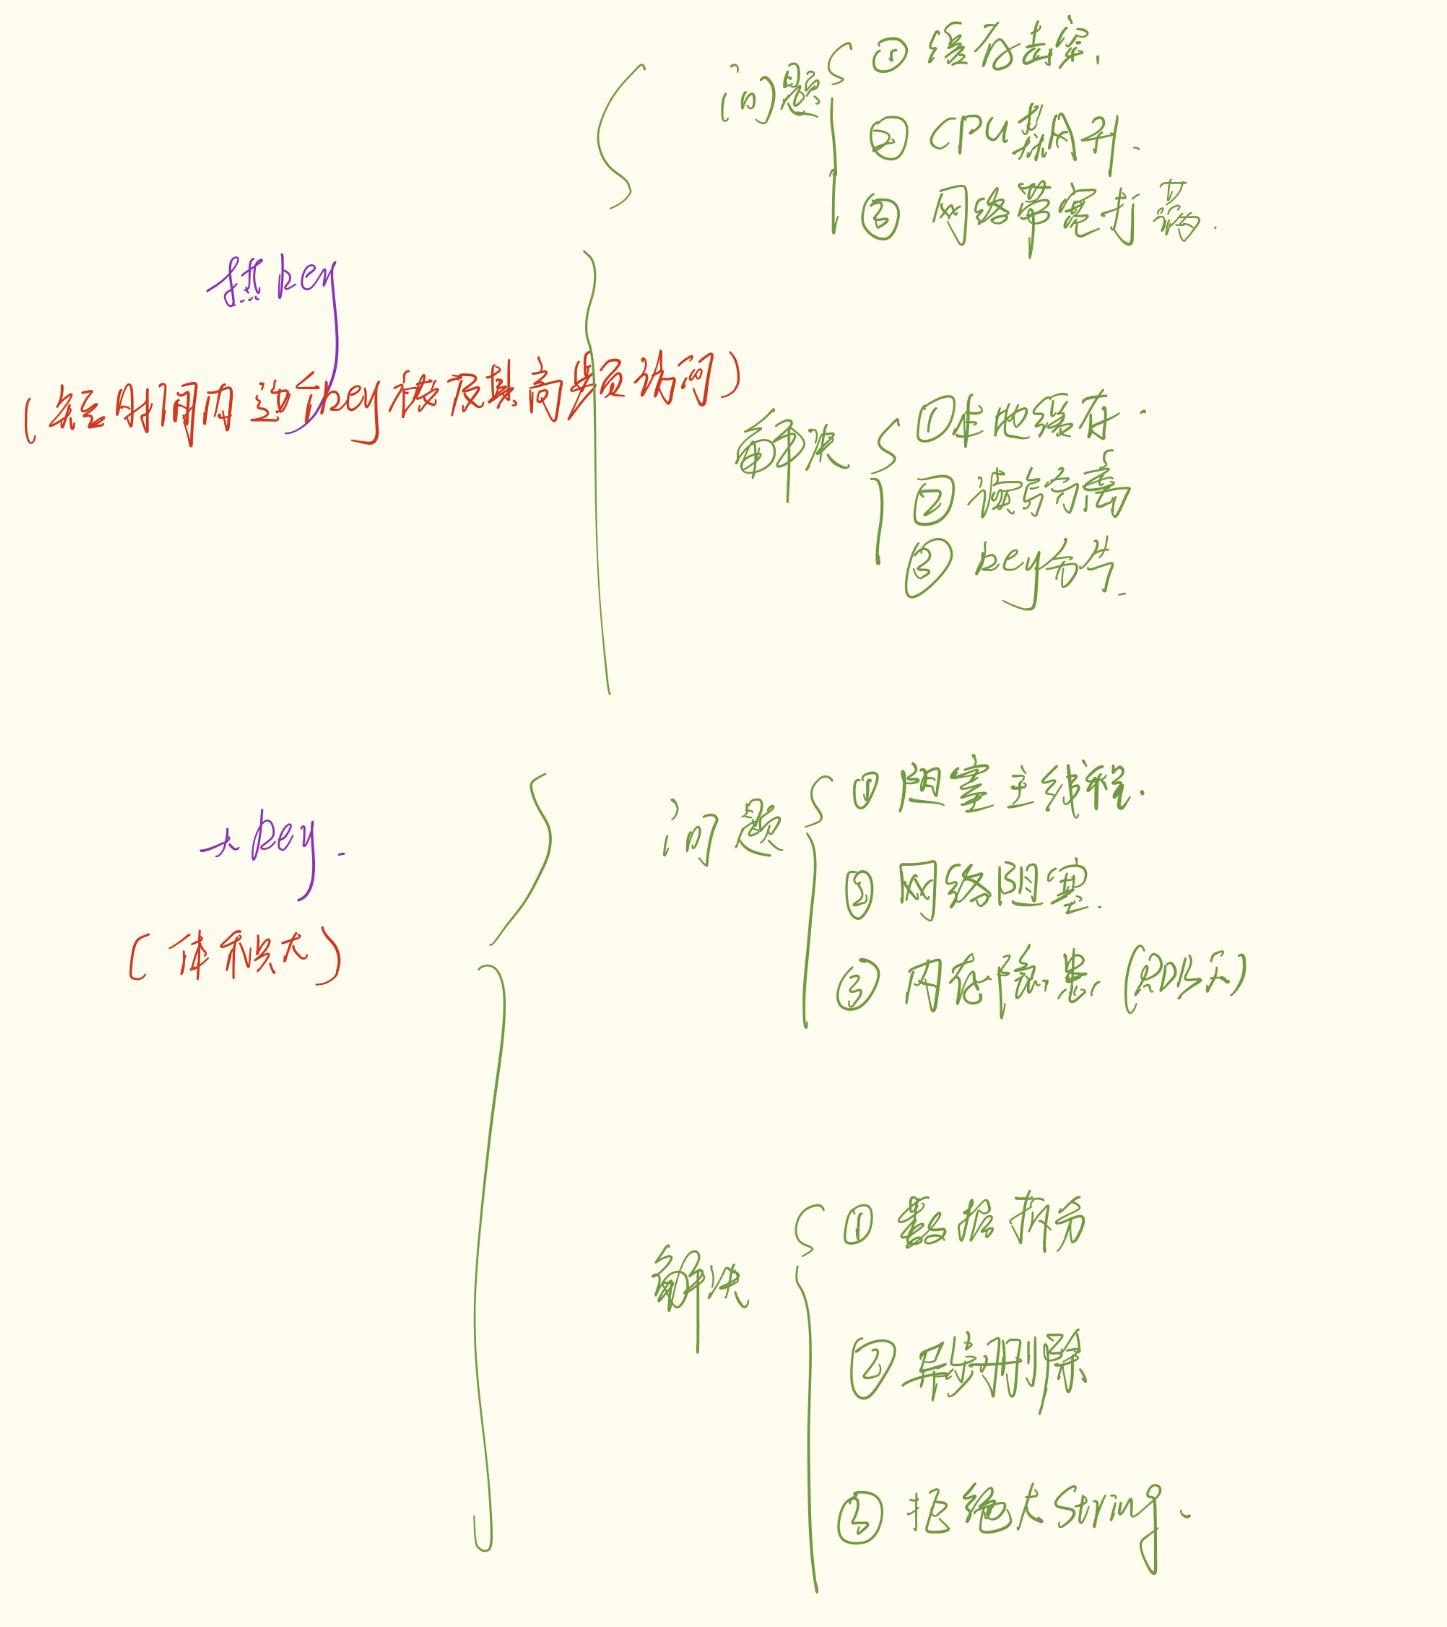 热key
(短时间内这个key被及其高频访问)
问题
① 缓存击穿.
② CPU飙升.
③ 网络带宽打满.
解决
① 本地缓存.
② 读写分离
③ key分片.
大key.
(体积大)
问题
① 阻塞主线程.
② 网络阻塞.
③ 内存隐患 (RDB大)
解决
① 数据拆分
② 异步删除
③ 拒绝大String.